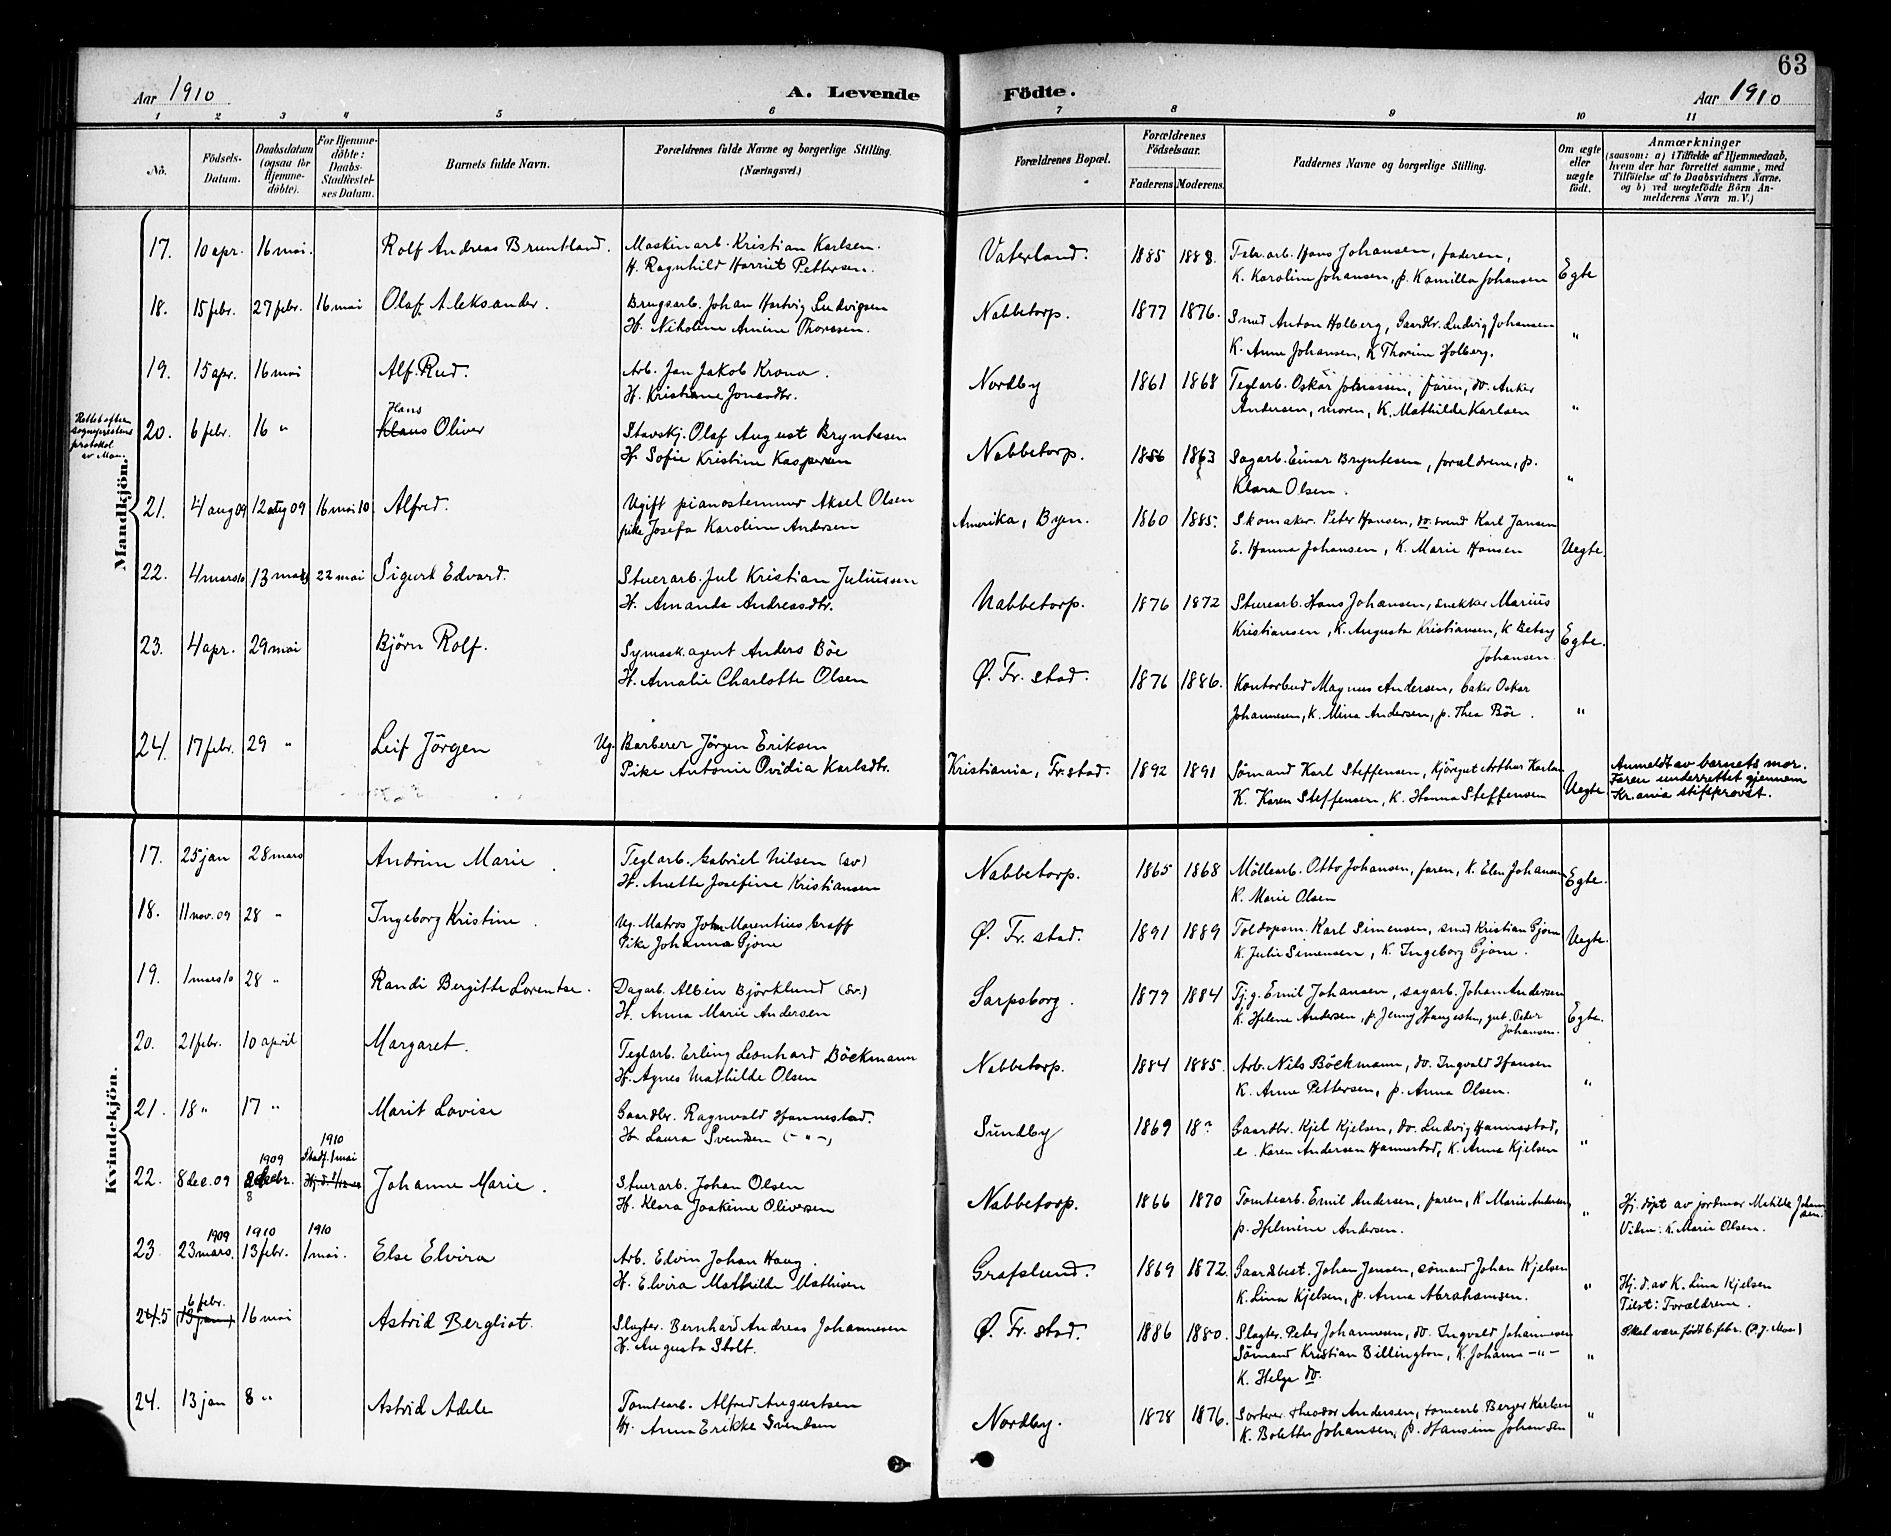 63
Aar 1910
A. Levende
Födte.
Aar 1910
1 2 3 4 5 6 7 8 9 10 11
No.
Födsels-
Datum.
Daabsdatum
(ogsaa for
Hjemme-
döbte).
For Hjemme-
döbte:
Daabs-
Stadfæstel-
ses Datum.
Barnets fulde Navn.
Forældrenes fulde Navne og borgerlige Stilling.
(Næringsvei.)
Forældrenes Bopæl.
Forældrenes
Födselsaar.
Faderens.
Moderens.
Faddernes Navne og borgerlige Stilling.
Om ægte
eller
uægte
født.
Anmærkninger
(saasom: a) i Tilfælde af Hjemmedaab,
hvem der har forrettet samme, med
Tilföielse af to Daabsvidners Navne,
og b) ved uægtefödte Börn An-
melderens Navn m. V.)
Mandkjön.
17. 10 apr. 16 mai. Rolf Andreas Bruntland. Maskinarb. Kristian Karlsen. Vaterland. 1885 1888. Fabr.arb. Hans Johansen, faderen,
H. Ragnhild Harriet Pettersen. K. Karoline Johansen, p. Kamilla Johansen Egte
18. 15 febr. 27 febr. 16 mai Olaf Aleksander. Brugsarb. Johan Hartvig Ludvigsen Nabbetorp. 1877 1876. Smed Anton Holberg, Gaardbr. Ludvig Johansen
H. Nikoline Amine Thoresen. K. Anne Johansen, K Thorine Holberg. "
19. 15 apr. 16 mai Alf. Rud. Arb. Jan Jakob Krona. Nordby 1861 1868 Teglarb. Oskar Johnassen, faren, do. Anker
H. Kristiane Jonasdtr. Andersen, moren, K. Mathilde Karlsen "
Rettet efter
sogneprestens
protokol
av Moe.
Hans
20. 6 febr. 16 " Klaus Oliver Stavskj. Olaf August Bryntesen Nabbetorp. 1856 1863 Sagarb. Einar Bryntesen, forældrene, p.
H. Sofie Kristine Kaspersen Klara Olsen. "
21. 4 aug 09 12 aug 09 16 mai 10 Alfred. Ugift pianostemmer Aksel Olsen Amerika, Byen. 1860 1885. Skomaker Peter Hansen, do. svend Karl Jansen
pike Josefa Karoline Andersen E. Hanna Johansen, K. Marie Hansen Uegte
22. 4 mars 10 13 mars 22 mai Sigurt Edvard. Stuerarb. Jul Kristian Juliussen Nabbetorp. 1876 1872 Stuerarb. Hans Johansen, snekker Marius
H. Amanda Andreasdtr. Kristiansen, K. Augusta Kristiansen, K Betsy Johansen Egte.
23. 4 apr. 29 mai Bjørn Rolf. Symask.agent Anders Böe Ø. Fr. stad. 1876 1886. Kontorbud Magnus Andersen, baker Oskar
H. Amalie Charlotte Olsen Johannesen, K. Mina Andersen, p. Thea Böe. "
24. 17 febr. 29 " Leif Jörgen Ug. Barberer Jörgen Eriksen Kristiania, Fr.stad. 1892 1891 Sömand Karl Steffensen, Kjöregut Arthur Karlsen
Pike Antonie Ovidia Karlsdtr. K. Karen Steffensen, K. Hanna Steffensen Uegte
Anmeldt av barnets mor.
Faren underrettet gjennem
Kr.ania stiftprovst.
Kvindekjön.
17. 25 jan 28 mars Andrine Marie. Teglarb. Gabriel Nilsen (sv) Nabbetorp. 1865 1868 Möllearb. Otto Johansen, faren, K. Elen Johansen
H. Anette Josefine Kristiansen K. Marie Olsen Egte.
18. 11 nov. 09 28 " Ingeborg Kristine. Ug. Matros John Marentius Graff Ø. Fr. stad. 1891 1889 Toldopsm. Karl Simensen, smed Kristian Gjøm
Pike Johanna Gjøm K. Julie Simensen, K. Ingeborg Gjøm. Uegte.
19. 1 mars 10 28 " Randi Bergitte Lorentse. Dagarb. Albin Björklund (Sv.) Sarpsborg. 1879 1884 Tj.g. Emil Johansen, sagarb. Johan Andersen
H. Anna Marie Andersen K. Helene Andersen, p. Jenny Haugesten, gut. Peder Johansen. Egte.
20. 21 febr. 10 april Margaret. Teglarb. Erling Leonhard Böckmann Nabbetorp. 1884 1885. Arb. Nils Böckmann, do. Ingvald Hansen
H. Agnes Mathilde Olsen K. Anne Pettersen, p. Anna Olsen. "
21. 18 " 17 " Marit Lovise Gaardbr. Ragnvald Hannestad. Sundby 1869 18? Gaardbr. Kjel Kjelsen, do. Ludvig Hannestad,
H. Laura Svendsen (-"-) e. Karen Andersen Hannestad, K. Anne Kjelsen "
1909 1910 Stadf. 1 mai
22. 8 dec. 09 8 Johanne Marie. Stuerarb. Johan Olsen Nabbetorp. 1866 1870 Tomtearb. Emil Andersen, faren, K Marie Andersen
H. Klara Joakime Oliversen p. Helmine Andersen. "
Hj. döpt av jordmor Matilde Johansen.
Vidn: K. Marie Olsen.
1909 1910 1910
23. 23 mars. 13 febr. 1 mai. Else Elvira Arb. Edvin Johan Haug. Grafslund. 1869 1872. Gaardbest. Johan Jensen, sömand Johan Kjelsen
H. Elvira Mathilde Mathisen K. Lina Kjelsen, p. Anna Abrahamsen. "
Hj. d. av K. Lina Kjelsen
Tilst: Forældrene.
6 febr.
245 13 jan 16 mai Astrid Bergliot. Slagter. Bernhard Andreas Johannesen Ø. Fr. stad. 1886 1880. Slagter. Peter Johannesen, do. Ingvald Johannesen
H. Augusta Stolt. Sömand Kristian Billington, K. Johanne -"-
K. Helga do. "
Skal være født 6 febr. (P.g. Moe)
24. 13 jan 8 " Astrid Adele Tomtearb. Alfred Augustsen Nordby. 1878 1876. Sorterer Theodor Andersen, tomtearb. Berger Karlsen
H. Anna Erikke Svendsen K. Bolette Johansen, p. Hansine Johansen "